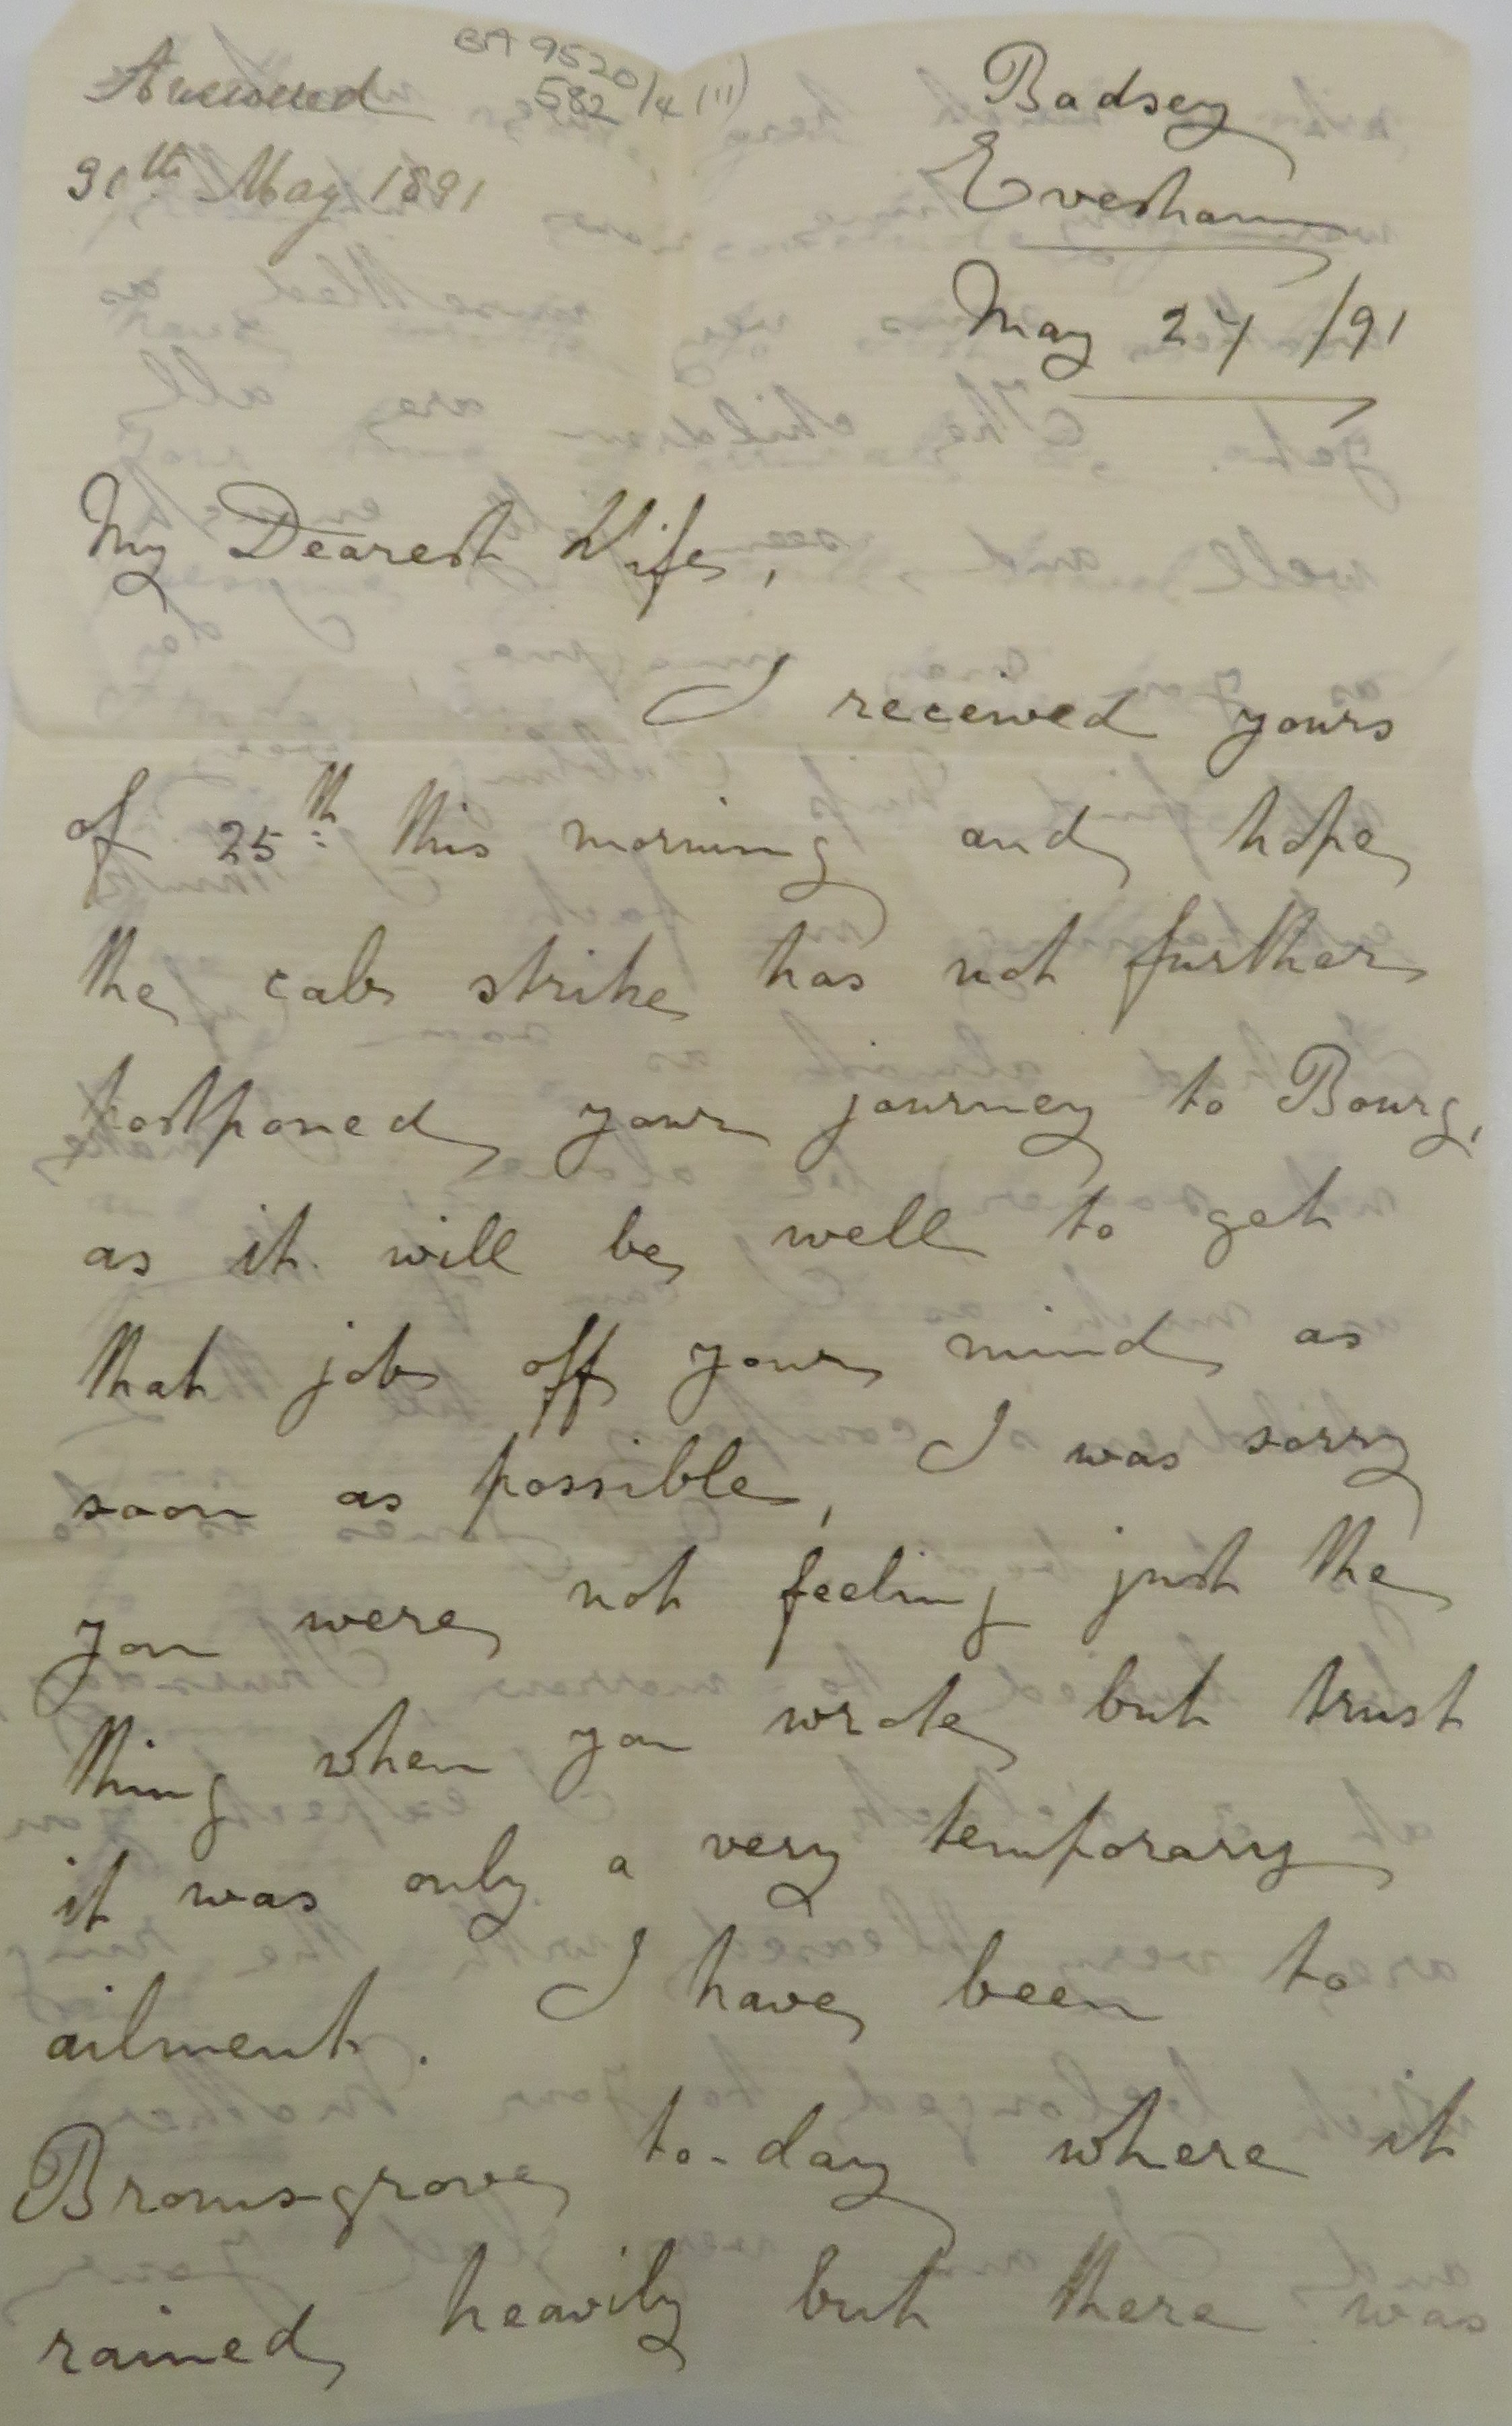 BA 9520/4 (11)
582
Answered
30th May 1891
Badsey
Evesham
May 27 /91
My Dearest Wife,
I received yours
of 25th this morning and hope
the cab strike has not further
postponed your journey to Bourg,
as it will be well to get
that job off your mind as
soon as possible, I was sorry
you were not feeling just the
thing when you wrote but trust
it was only a very temporary
ailment. I have been to
Bromsgrove to-day where it
rained heavily but there was